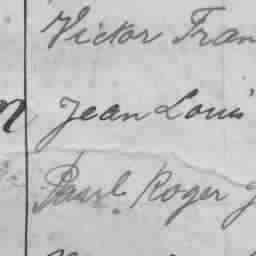 Victor Fran
Jean Louis
Paul Roger